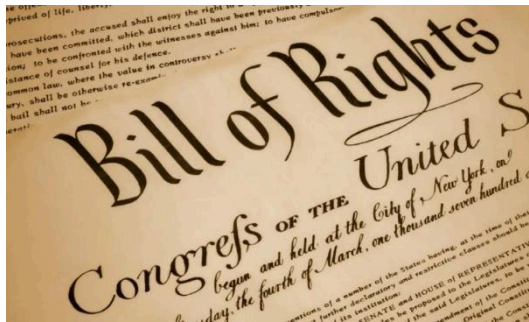 prived of life, liberty,
prosecutions, the accused shall enjoy the right to a
have been committed, which district shall have been previously
ion; to be confronted with the witnesses against him; to have compulsor
istance of counsel for his defence.
ommon law, where the value in controversy shall
ury, shall be otherwise re-exami
bail shall not be
Bill of Rights
Congreſs OF THE United S
begun and held at the City of New York, on
day, the fourth of March, one thousand seven hundred
entions of a number of the States having, at the time of the
further declaratory and restrictive clauses should be
its institution:
SENATE and HOUSE of REPRESENTATIV
be proposed to the Legislatures
the said Legislatures, to be
endment of the Constitu
Original Constit